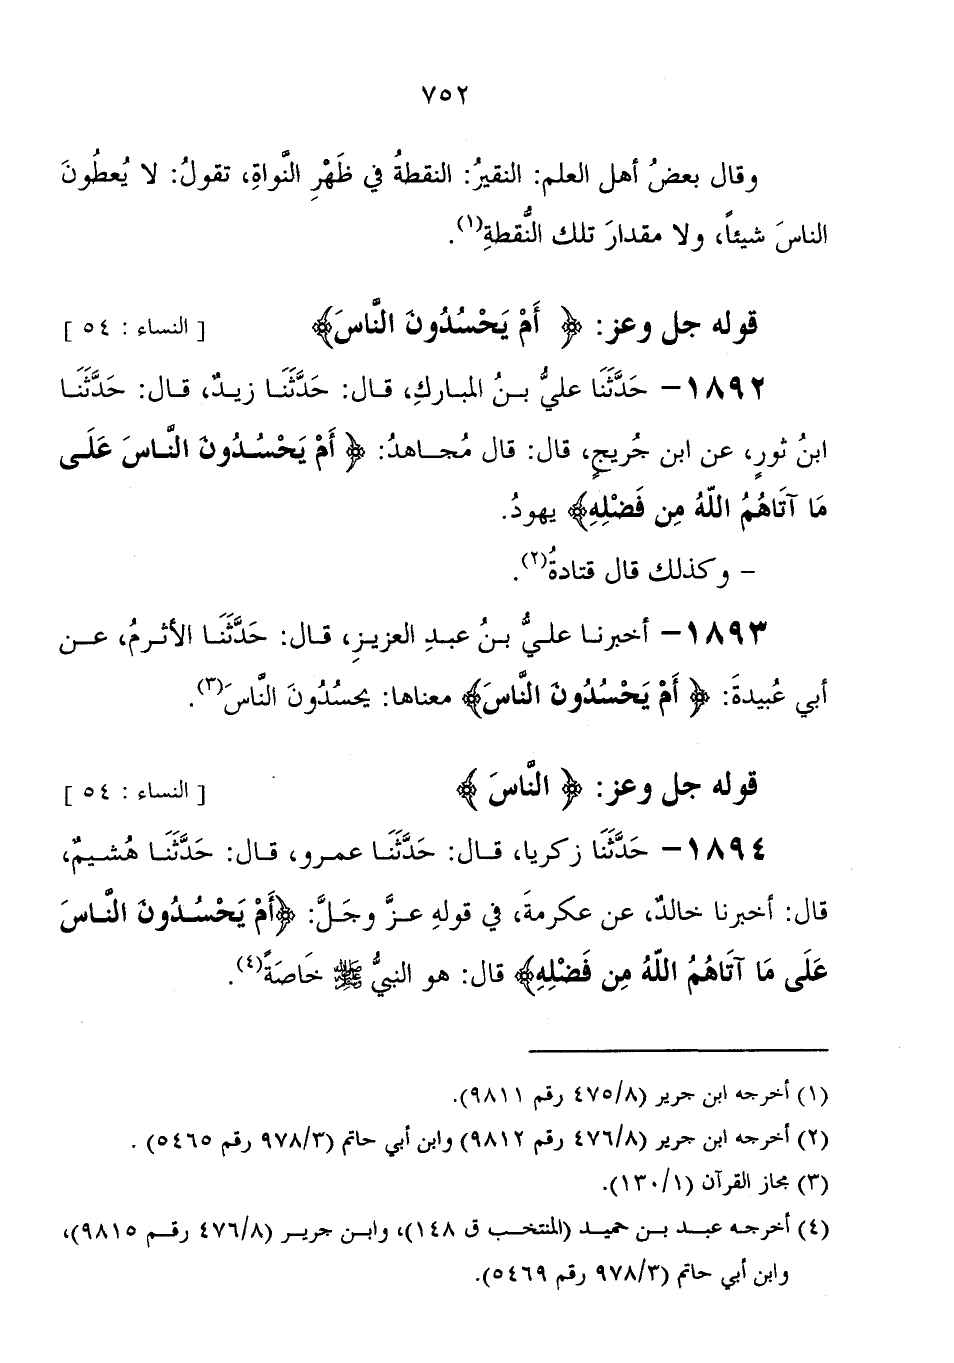 ٧٥٢
وقال بعضُ أهل العلم: النقيرُ: النقطةُ في ظَهْرِ النَّواةِ، تقولُ: لا يُعطُونَ
الناسَ شيئاً، ولا مقدارَ تلك النُّقطةِ(١).
قوله جل وعز: ﴿ أَمْ يَحْسُدُونَ النَّاسَ﴾ [ النساء : ٥٤ ]
١٨٩٢- حَدَّثَنَا عليُّ بـنُ المبـاركِ، قـال: حَدَّثَنَـا زيـدٌ، قـال: حَدَّثَنَـا
ابنُ ثورٍ، عن ابن جُريجٍ، قال: قال مُجـاهدُ: ﴿ أَمْ يَحْسُـدُونَ النَّـاسَ عَلَـى
مَا آتَاهُمُ اللّهُ مِن فَضْلِهِ﴾ يهودُ.
- وكذلك قال قتادةُ(٢).
١٨٩٣- أخبرنـا علـيُّ بـنُ عبـدِ العزيـزِ، قـال: حَدَّثَنَـا الأثـرمُ، عـن
أبي عُبيدةَ: ﴿ أَمْ يَحْسُدُونَ النَّاسَ﴾ معناها: يحسُدُونَ النَّاسَ(٣).
قوله جل وعز: ﴿ النَّاسَ ﴾ [ النساء : ٥٤ ]
١٨٩٤- حَدَّثَنَا زكريا، قـال: حَدَّثَنَـا عمـرو، قـال: حَدَّثَنَـا هُشـيمٌ،
قال: أخبرنا خالدٌ، عن عكرمةَ، في قولهِ عـزَّ وجَـلَّ: ﴿أَمْ يَحْسُـدُونَ النَّـاسَ
عَلَى مَا آتَاهُمُ اللّهُ مِن فَضْلِهِ﴾ قال: هو النبيُّ ﷺ خَاصَةً(٤).
(١) أخرجه ابن جرير (٤٧٥/٨ رقم ٩٨١١).
(٢) أخرجه ابن جرير (٤٧٦/٨ رقم ٩٨١٢) وابن أبي حاتم (٩٧٨/٣ رقم ٥٤٦٥) .
(٣) مجاز القرآن (١٣٠/١).
(٤) أخرجـه عبـد بـن حميـد (المنتخـب ق ١٤٨)، وابـن جريـر (٤٧٦/٨ رقـم ٩٨١٥)،
وابن أبي حاتم (٩٧٨/٣ رقم ٥٤٦٩).